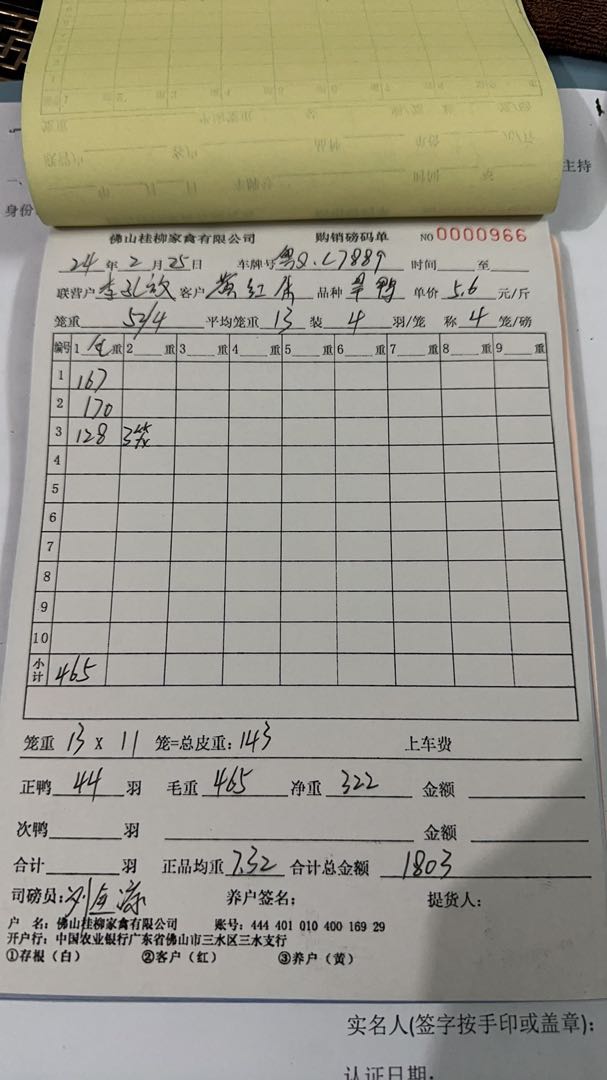 主持
身份
佛山桂柳家禽有限公司 购销磅码单 NO 0000966
24 年 2 月 25 日 车牌号 粤Q.L7889 时间 至
联营户 李 客户 黄红 品种 旱鸭 单价 5.6 元/斤
笼重 52/4 平均笼重 13 装 4 羽/笼 称 4 笼/磅
编号 1 毛 重 2 重 3 重 4 重 5 重 6 重 7 重 8 重 9 重
1 167
2 170
3 128 3笼
4
5
6
7
8
9
10
小计 465
笼重 13 X 11 笼=总皮重: 143 上车费
正鸭 44 羽 毛重 465 净重 322 金额
次鸭 羽 金额
合计 羽 正品均重 7.32 合计总金额 1803
司磅员: 刘 养户签名; 提货人:
户 名: 佛山桂柳家禽有限公司 账号: 444 401 010 400 169 29
开户行: 中国农业银行广东省佛山市三水区三水支行
①存根（白） ②客户（红） ③养户（黄）
实名人(签字按手印或盖章):
认证日期: